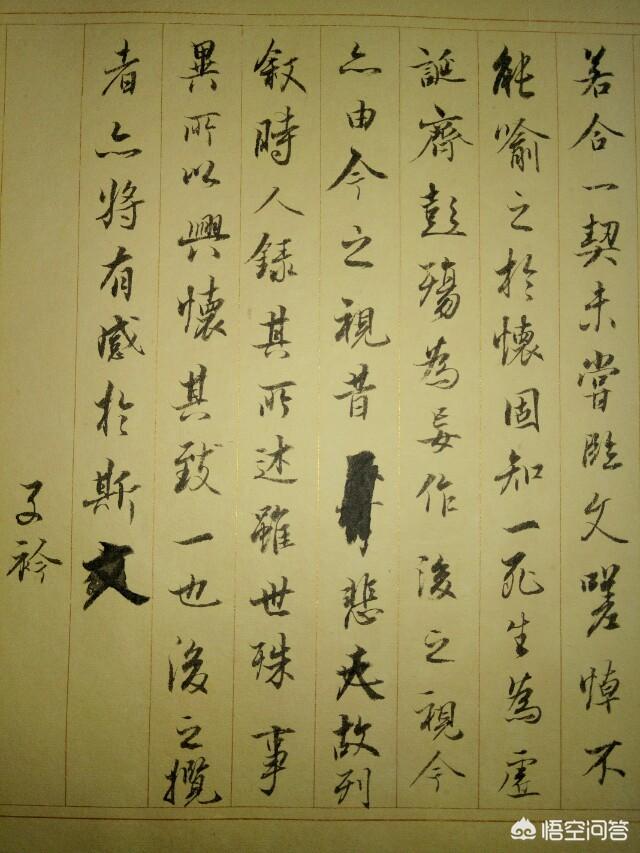 若合一契未嘗臨文嗟悼不
能喻之於懷固知一死生為虛
誕齊彭殤為妄作後之視今
亦由今之視昔悲夫故列
敘時人錄其所述雖世殊事
異所以興懷其致一也後之攬
者亦將有感於斯文
子衿
悟空问答